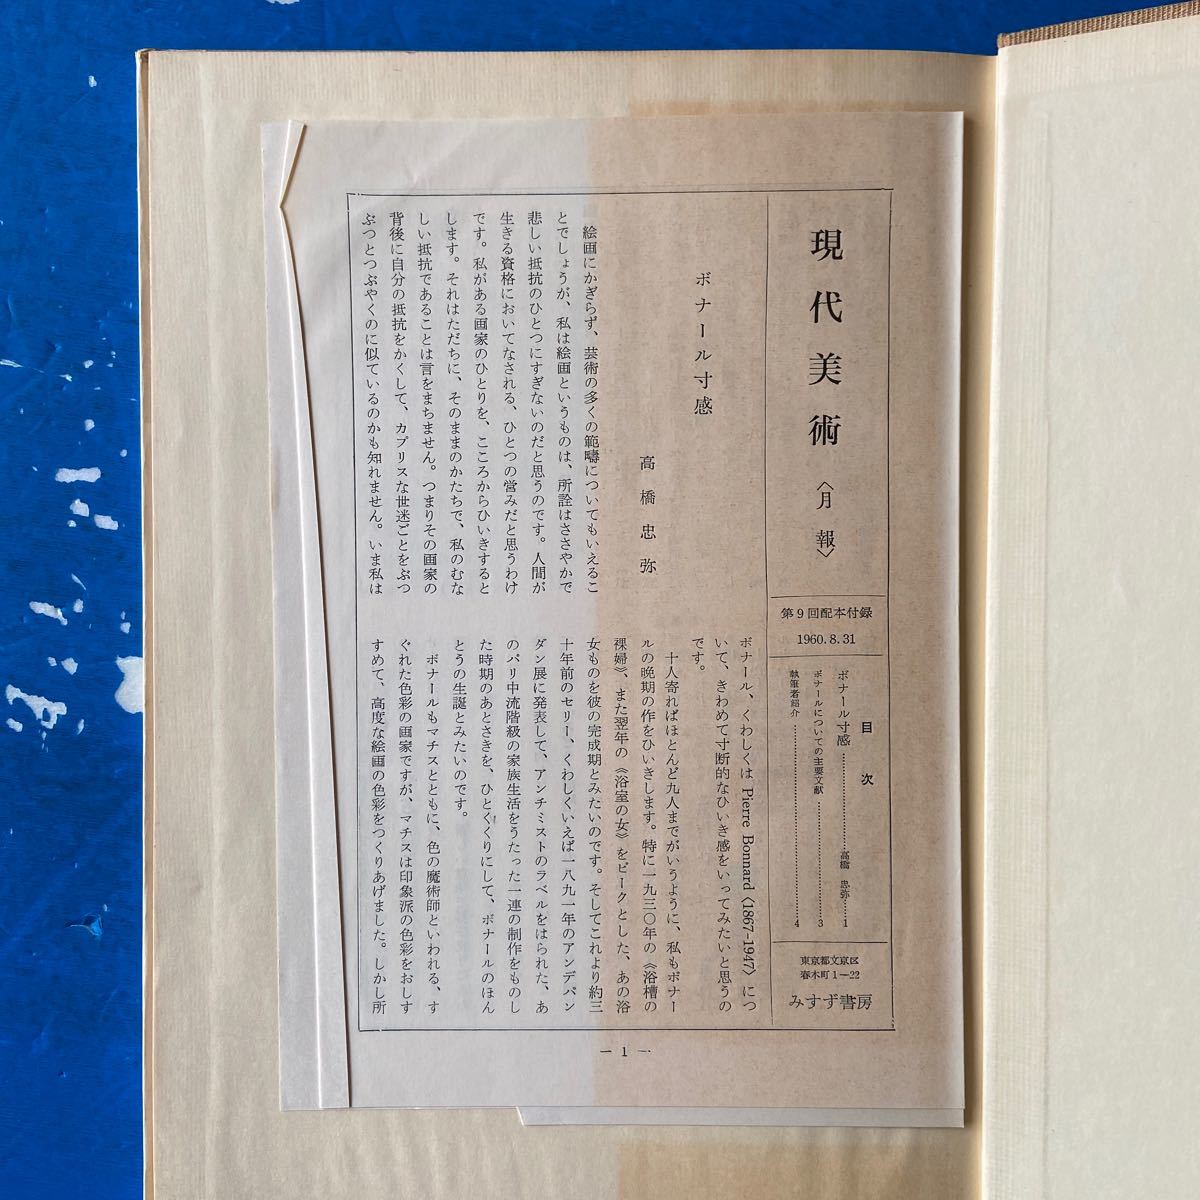 現代美術
〈月報〉
第9回配本付録
1960.8.31
目次
ボナール寸感……………高橋忠弥……1
ボナールについての主要文献………………3
執筆者紹介………………………4
東京都文京区
春木町1―22
みすず書房
ボナール寸感
高橋忠弥
絵画にかぎらず、芸術の多くの範疇についてもいえるこ
とでしょうが、私は絵画というものは、所詮はささやかで
悲しい抵抗のひとつにすぎないのだと思うのです。人間が
生きる資格においてなされる、ひとつの営みだと思うわけ
です。私がある画家のひとりを、こころからひいきすると
します。それはただちに、そのままのかたちで、私のむな
しい抵抗であることは言をまちません。つまりその画家の
背後に自分の抵抗をかくして、カプリスな世迷ごとをぶつ
ぶつとつぶやくのに似ているのかも知れません。いま私は
ボナール、くわしくは Pierre Bonnard〈1867-1947〉につ
いて、きわめて寸断的なひいき感をいってみたいと思うの
です。
十人寄ればほとんど九人までがいうように、私もボナー
ルの晩期の作をひいきします。特に一九三〇年の《浴槽の
裸婦》、また翌年の《浴室の女》をピークとした、あの浴
女ものを彼の完成期とみたいのです。そしてこれより約三
十年前のセリー、くわしくいえば一八九一年のアンデパン
ダン展に発表して、アンチミストのラベルをはられた、あ
のパリ中流階級の家族生活をうたった一連の制作をものし
た時期のあとさきを、ひとくくりにして、ボナールのほん
とうの生誕とみたいのです。
ボナールもマチスとともに、色の魔術師といわれる、す
ぐれた色彩の画家ですが、マチスは印象派の色彩をおしす
すめて、高度な絵画の色彩をつくりあげました。しかし所
― 1 ―